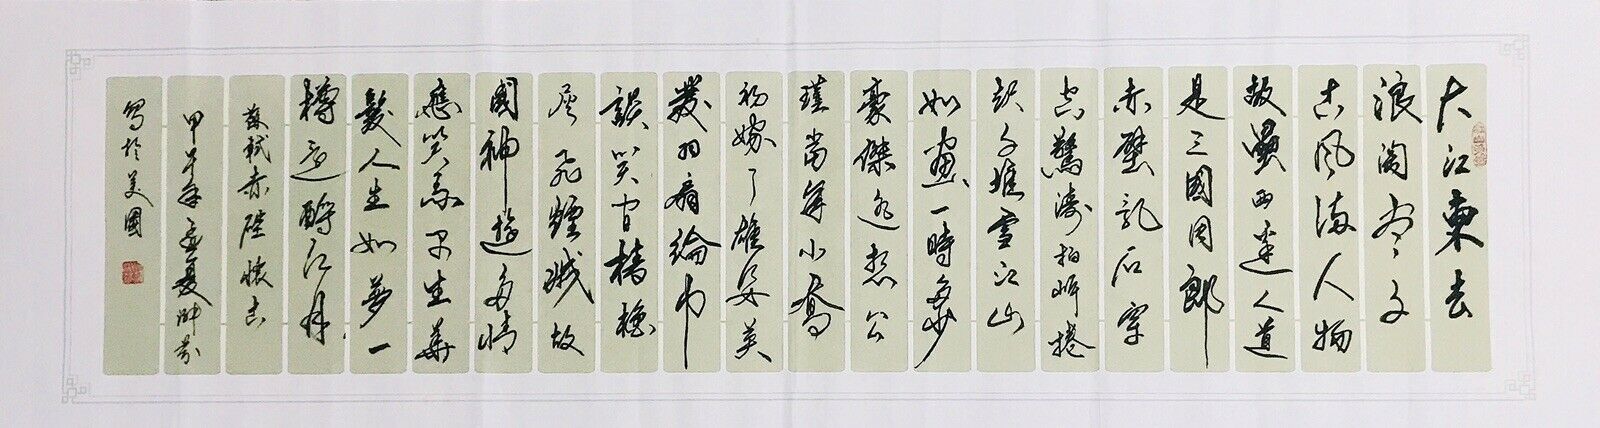 大江東去
浪淘尽千
古風流人物
故壘西邊人道
是三國周郎
赤壁亂石穿
空驚濤拍岸捲
起千堆雪江山
如畫一時多少
豪傑遙想公
瑾當年小喬
初嫁了雄姿英
發羽扇綸巾
談笑间樯櫓
灰飛煙滅故
國神遊多情
應笑我早生華
髮人生如夢一
樽還酹江月
蘇軾赤壁懷古
甲午年孟夏
寫於美國